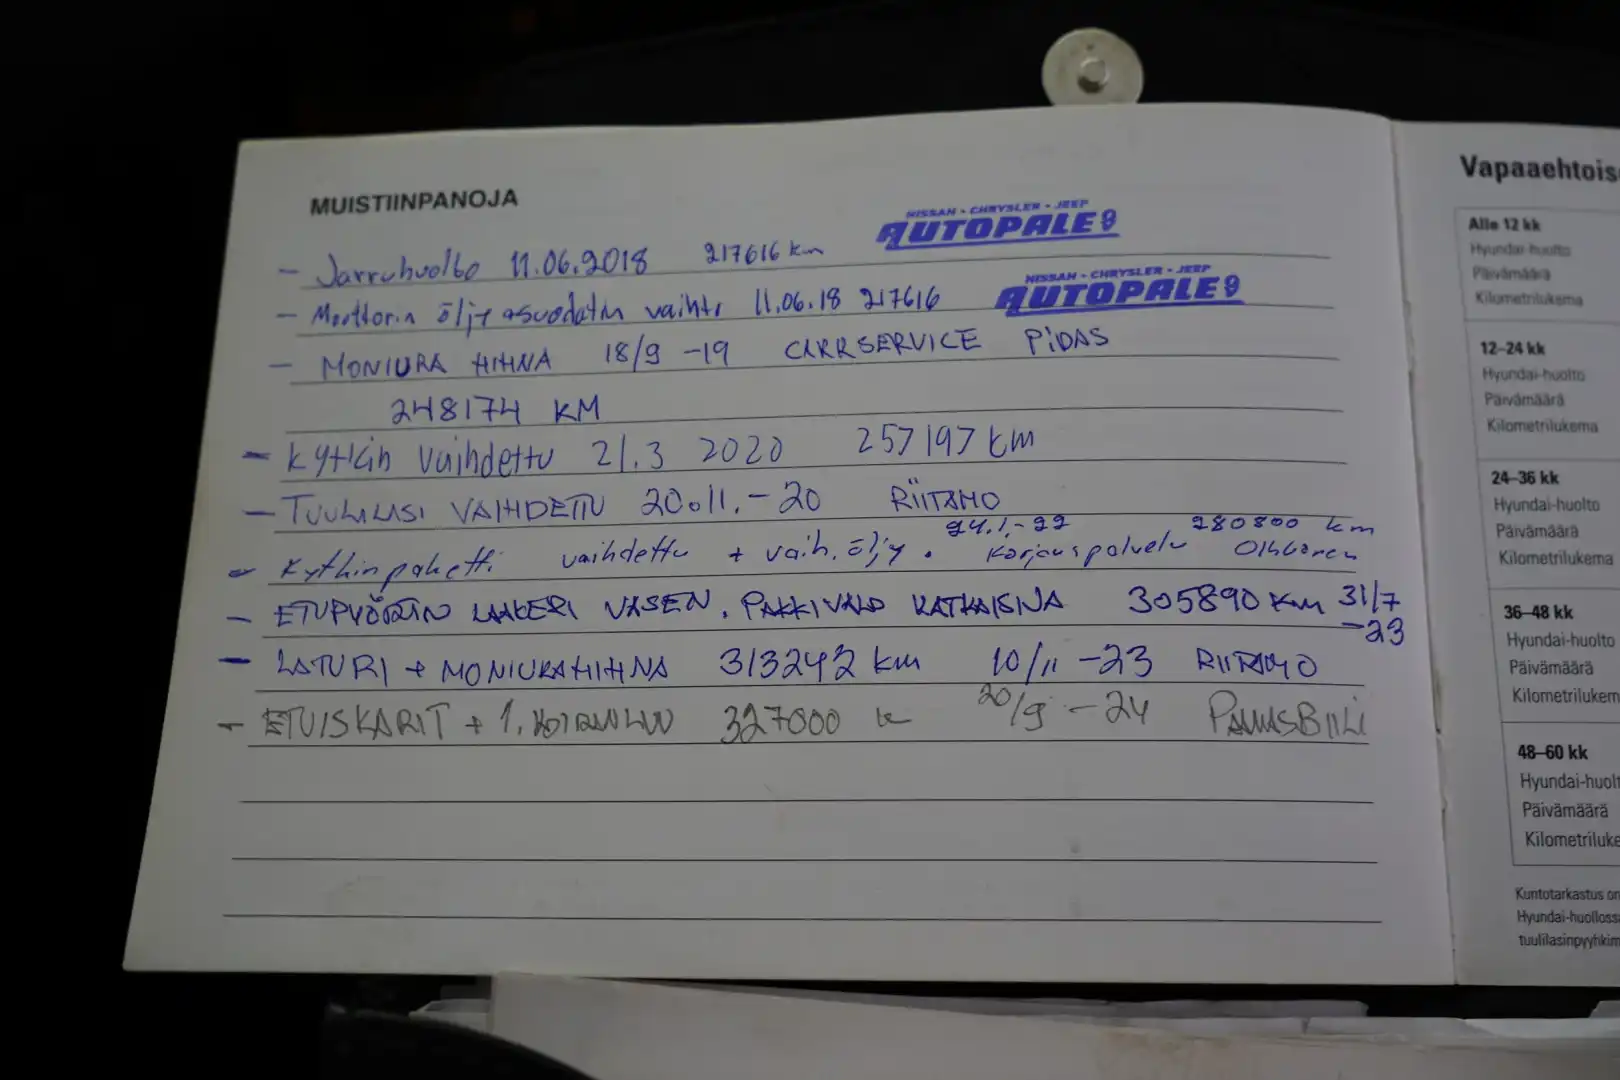 MUISTIINPANOJA
NISSAN - CHRYSLER - JEEP
AUTOPALE
- Jarruhuolto 11.06.2018 217616 km
NISSAN - CHRYSLER - JEEP
AUTOPALE
- Moottorin öljy asuodatin vaihto 11.06.18 217616
- MONIURA HIHNA 18/9 -19 CARRSERVICE PIDAS
248174 KM
- Kytkin vaihdettu 21.3 2020 257197 km
- TUULILASI VAIHDETTU 20.11.-20 RIITAHO
24.1.-22 280800 km
- Kytkinpaketti vaihdettu + vaih. öljy. Korjauspalvelu
- ETUPYÖRÄN LAAKERI VASEN. PAKKIVALO KATKAISIJA 305890 KM 31/7
-23
- LATURI + MONIURAHIHNA 313242 km 10/11 -23 RIITAHO
- ETUISKARIT + 1. 327000 20/9 -24
Vapaaehtois
Alle 12 kk
Hyundai-huolto
Päivämäärä
Kilometrilukema
12–24 kk
Hyundai-huolto
Päivämäärä
Kilometrilukema
24–36 kk
Hyundai-huolto
Päivämäärä
Kilometrilukema
36–48 kk
Hyundai-huolto
Päivämäärä
Kilometrilukem
48–60 kk
Hyundai-huolt
Päivämäärä
Kilometriluke
Kuntotarkastus on
Hyundai-huolloss
tuulilasinpyyhkim